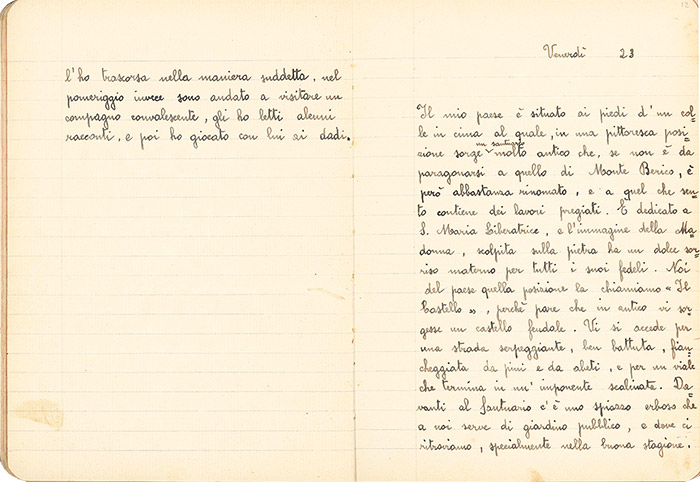 l'ho trascorsa nella maniera suddetta, nel
pomeriggio invece sono andato a visitare un
compagno convalescente, gli ho letti alcuni
racconti, e poi ho giocato con lui ai dadi.
12
Venerdì 23
Il mio paese è situato ai piedi d'un col-
le in cima al quale, in una pittoresca posi-
zione sorge un santuario molto antico che, se non è da
paragonarsi a quello di Monte Berico, è
però abbastanza rinomato, e a quel che sen-
to contiene dei lavori pregiati. È dedicato a
S. Maria Liberatrice, e l'immagine della Ma-
donna, scolpita sulla pietra ha un dolce sor-
riso materno per tutti i suoi fedeli. Noi
del paese quella posizione la chiamiamo « Il
Castello », perchè pare che in antico vi sor-
gesse un castello feudale. Vi si accede per
una strada serpeggiante, ben battuta, fian-
cheggiata da pini e da abeti, e per un viale
che termina in un' imponente scalinata. Da-
vanti al Santuario c'è uno spiazzo erboso che
a noi serve di giardino pubblico, e dove ci
ritroviamo, specialmente nella buona stagione.